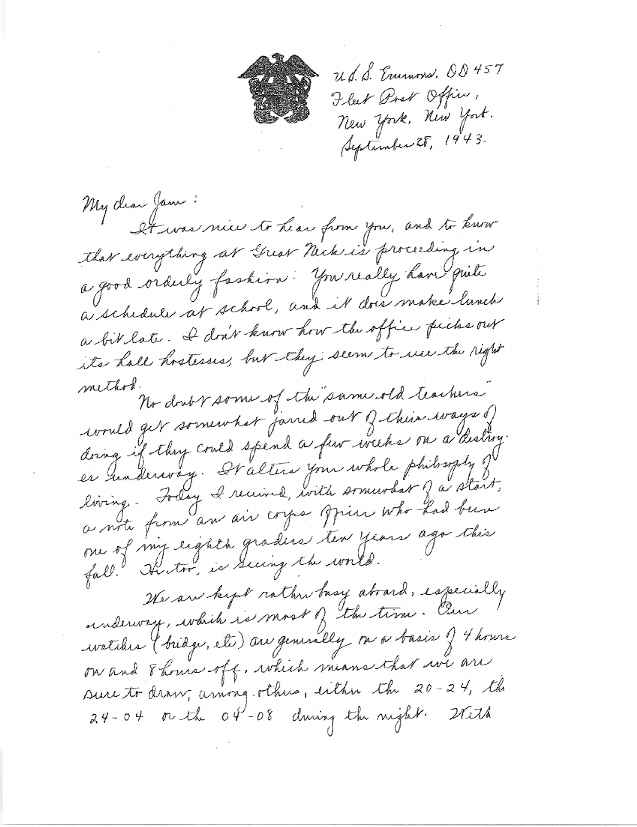 U.S.S. Emmons, DD 457
Fleet Post Office,
New York, New York.
September 28, 1943.
My dear Jane:
It was nice to hear from you, and to know
that everything at Great Neck is proceeding in
a good orderly fashion. You really have quite
a schedule at school, and it does make lunch
a bit late. I don't know how the office picks out
its hall hostesses, but they seem to use the right
method.
No doubt some of the "same old teachers"
would get somewhat jarred out of their ways of
doing if they could spend a few weeks on a destroy-
er underway. It alters your whole philosophy of
living. Today I received, with somewhat of a start,
a note from an air corps officer who had been
one of my eighth graders ten years ago this
fall. He, too, is seeing the world.
We are kept rather busy aboard, especially
underway, which is most of the time. Our
watches (bridge, etc) are generally on a basis of 4 hours
on and 8 hours off, which means that we are
sure to draw, among others, either the 20-24, the
24-04 or the 04-08 during the night. With